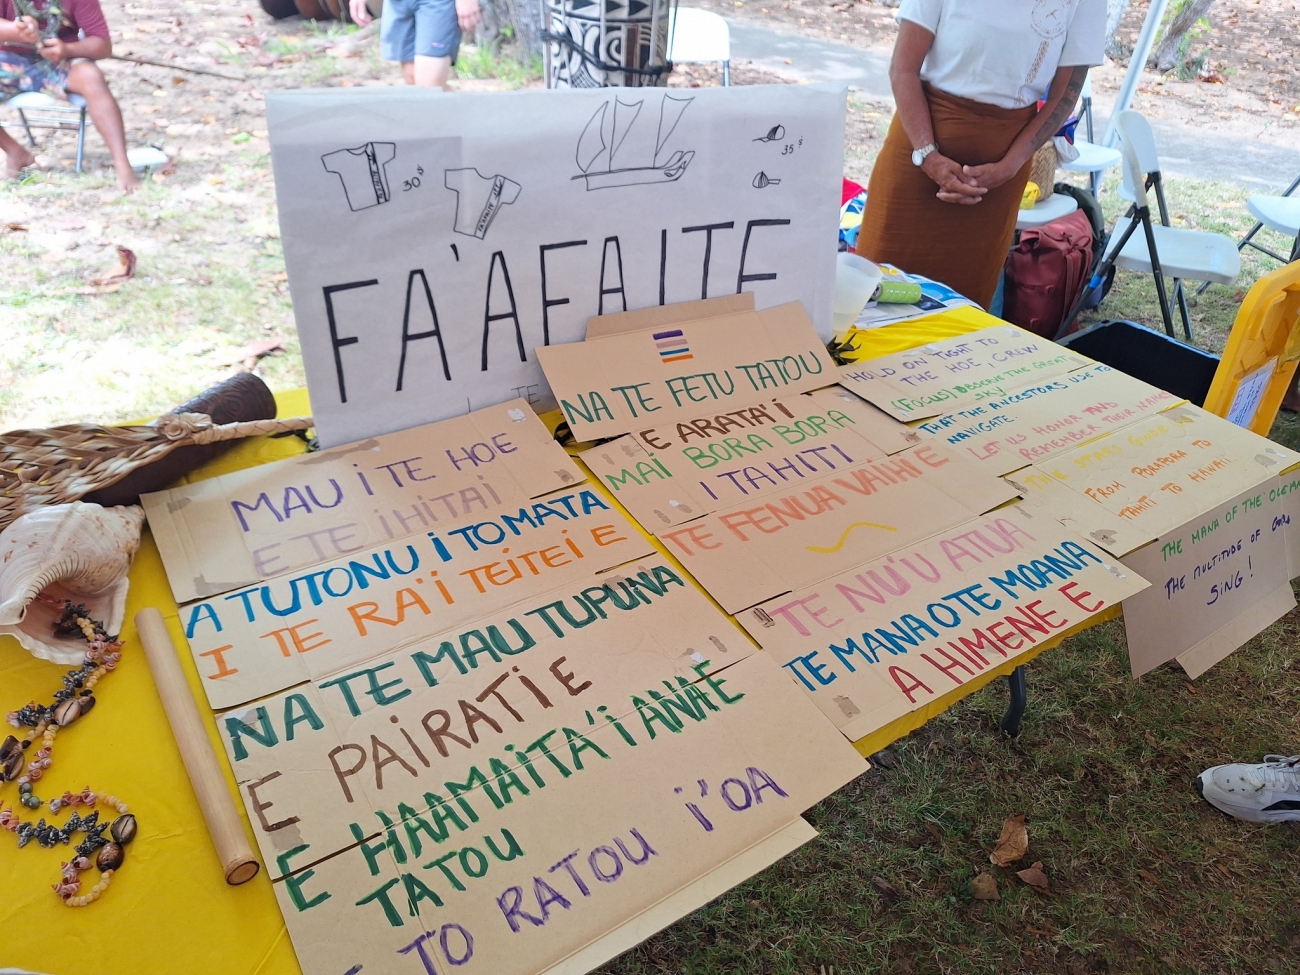 30 $
35 $
FA'AFAITE
MAU I TE HOE
E TE IHITAI
A TUTONU I TO MATA
I TE RA'I TEITEI E
NA TE MAU TUPUNA
E PAIRATI E
E HAAMAITA'I ANA'E
TATOU
TO RATOU I'OA
NA TE FETU TATOU
E ARATA'I
MAI BORA BORA
I TAHITI
TE FENUA VAIHI E
TE NU'U ATUA
TE MANA O TE MOANA
A HIMENE E
HOLD ON TIGHT TO
THE HOE, CREW
(FOCUS) OBSERVE THE GREAT
SKY
THAT THE ANCESTORS USE TO
NAVIGATE
LET US HONOR AND
REMEMBER THEIR NAME
THE STARS GUIDE
FROM PORAPORA TO
TAHITI TO HAWAI
THE MANA OF THE OCEAN
THE MULTITUDE OF GODS
SING!